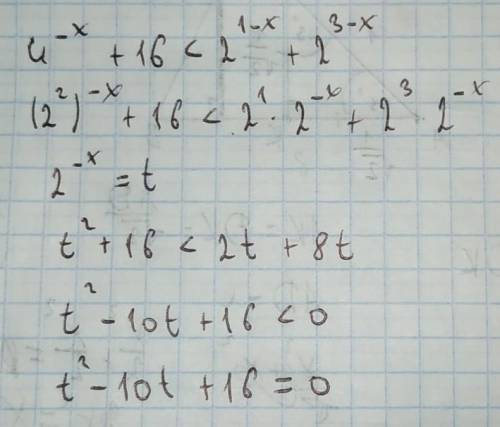 4^{-x} + 16 < 2^{1-x} + 2^{3-x}
(2^2)^{-x} + 16 < 2^1 · 2^{-x} + 2^3 2^{-x}
2^{-x} = t
t^2 + 16 < 2t + 8t
t^2 - 10t + 16 < 0
t^2 - 10t + 16 = 0